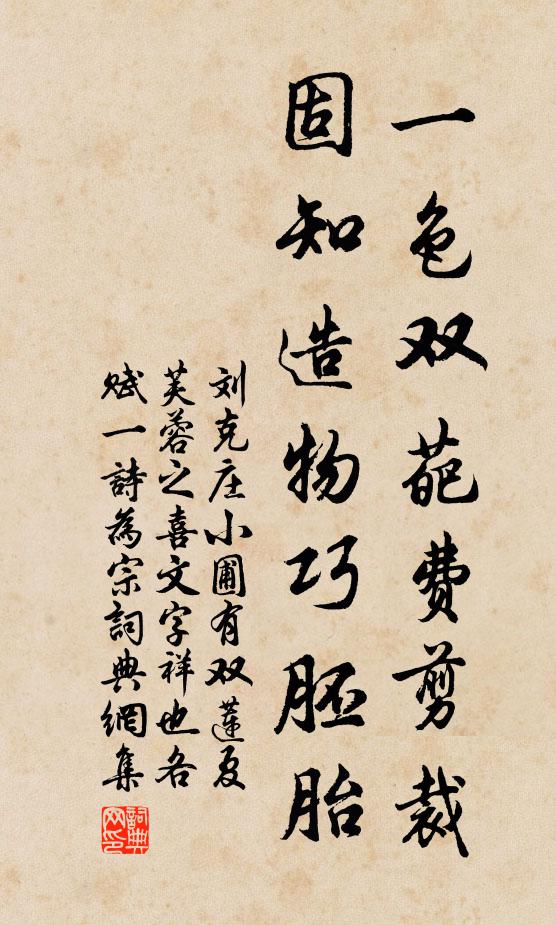 一色双葩费剪裁
固知造物巧胚胎
刘克庄小圃有双莲夏
芙蓉之喜文字祥也各
赋一詩為宗詞典網集
詞典
网印